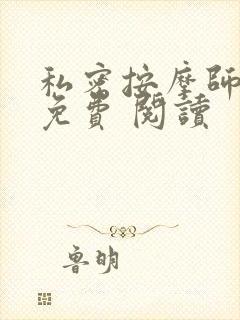 私密按摩師
免費 閱讀
魯明